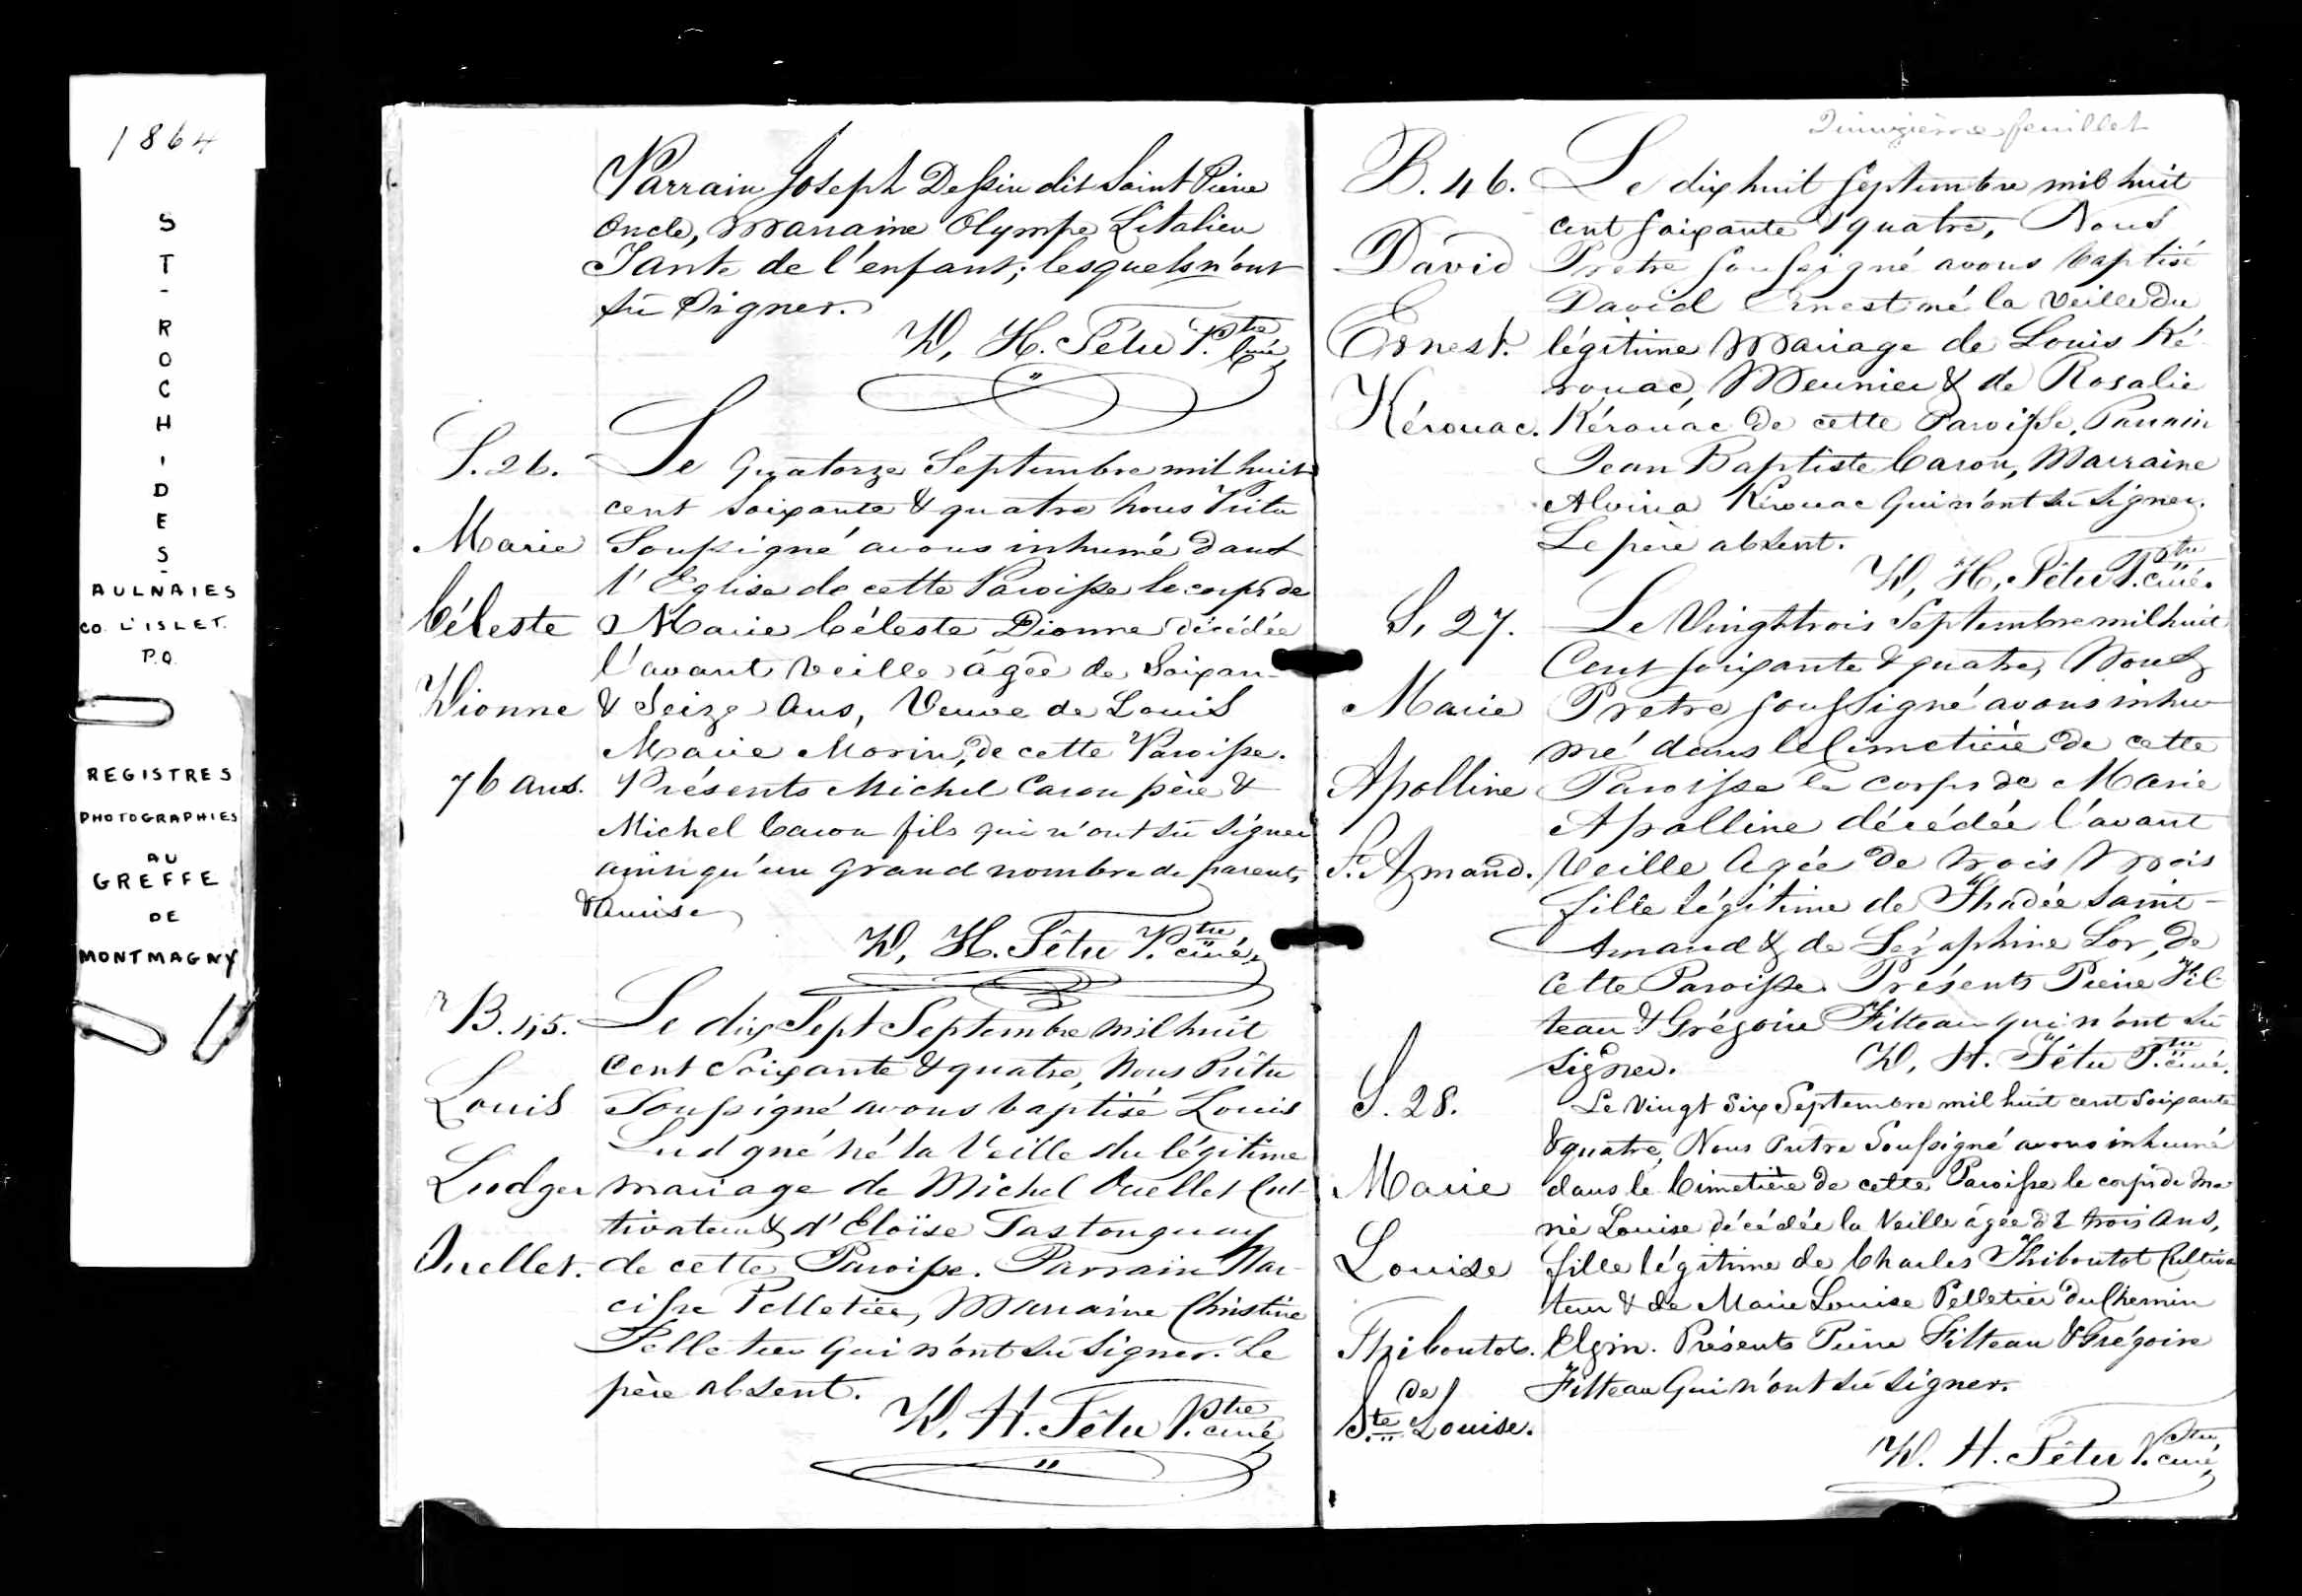 1864
ST-ROCH-DES-
AULNAIES
CO. L'ISLET.
P.Q.
REGISTRES
PHOTOGRAPHIES
AU
GREFFE
DE
MONTMAGNY
Parrain Joseph Dessin dit Saint Pierre
Oncle, Marraine Olympe L'italien
Tante de l'enfant; lesquels n'ont
su Signer.
D. H. Têtu Ptre Curé
S. 26.
Marie
Céleste
Dionne
76 ans.
Le Quatorze Septembre mil huit
cent soixante & quatre Nous Prêtre
Soussigné avons inhumé dans
l'Eglise de cette Paroisse le corps de
Marie Céleste Dionne décédée
l'avant veille âgée de Soixan-
& Seize Ans, Veuve de Louis
Marie Morin, de cette Paroisse.
Présents Michel Caron père &
Michel Caron fils qui n'ont su signer
ainsi qu'un grand nombre de parents
& amis
D. H. Têtu Ptre curé
B. 45.
Louis
Ludger
Ouellet.
Le dix Sept Septembre mil huit
Cent Soixante & quatre, Nous Prêtre
Soussigné avons baptisé Louis
né la Veille du légitime
mariage de Michel Ouellet Cul-
tivateur & d'Eloïse Tastonguay
de cette Paroisse. Parrain Nar-
cisse Pelletier, Marraine Christine
Pelletier qui n'ont su signer. Le
père absent.
D. H. Têtu Ptre curé
feuillet
B. 46.
David
Ernest.
Kérouac.
Le dix huit Septembre mil huit
cent soixante & quatre, Nous
Prêtre soussigné avons baptisé
David Ernest né la veille du
légitime Mariage de Louis Ké-
rouac, Meunier & de Rosalie
Kérouac de cette Paroisse. Parrain
Jean Baptiste Caron, Marraine
Alvina Kérouac qui n'ont su signer.
Le père absent.
D. H. Têtu Ptre curé.
S. 27.
Marie
Apolline
St. Amand.
Le Vingt trois Septembre mil huit
Cent soixante & quatre, Nous
Prêtre soussigné avons inhu-
mé dans le Cimetière de cette
Paroisse le corps de Marie
Apolline décédée l'avant
Veille âgée de trois Mois
fille légitime de Thadée Saint-
Amand & de Séraphine Lor, de
cette Paroisse. Présents Pierre Fil-
teau & Grégoire Filteau qui n'ont su
signer.
D. H. Têtu Ptre curé.
S. 28.
Marie
Louise
Thiboutot.
de
Ste. Louise.
Le Vingt Six Septembre mil huit cent soixante
& quatre, Nous Prêtre Soussigné avons inhumé
dans le Cimetière de cette Paroisse le corps de Ma-
rie Louise décédée la Veille âgée de trois Ans,
fille légitime de Charles Thiboutot Cultiva-
teur & de Marie Louise Pelletier du Chemin
Elgin. Présents Pierre Filteau & Grégoire
Filteau qui n'ont su signer.
D. H. Têtu Ptre curé